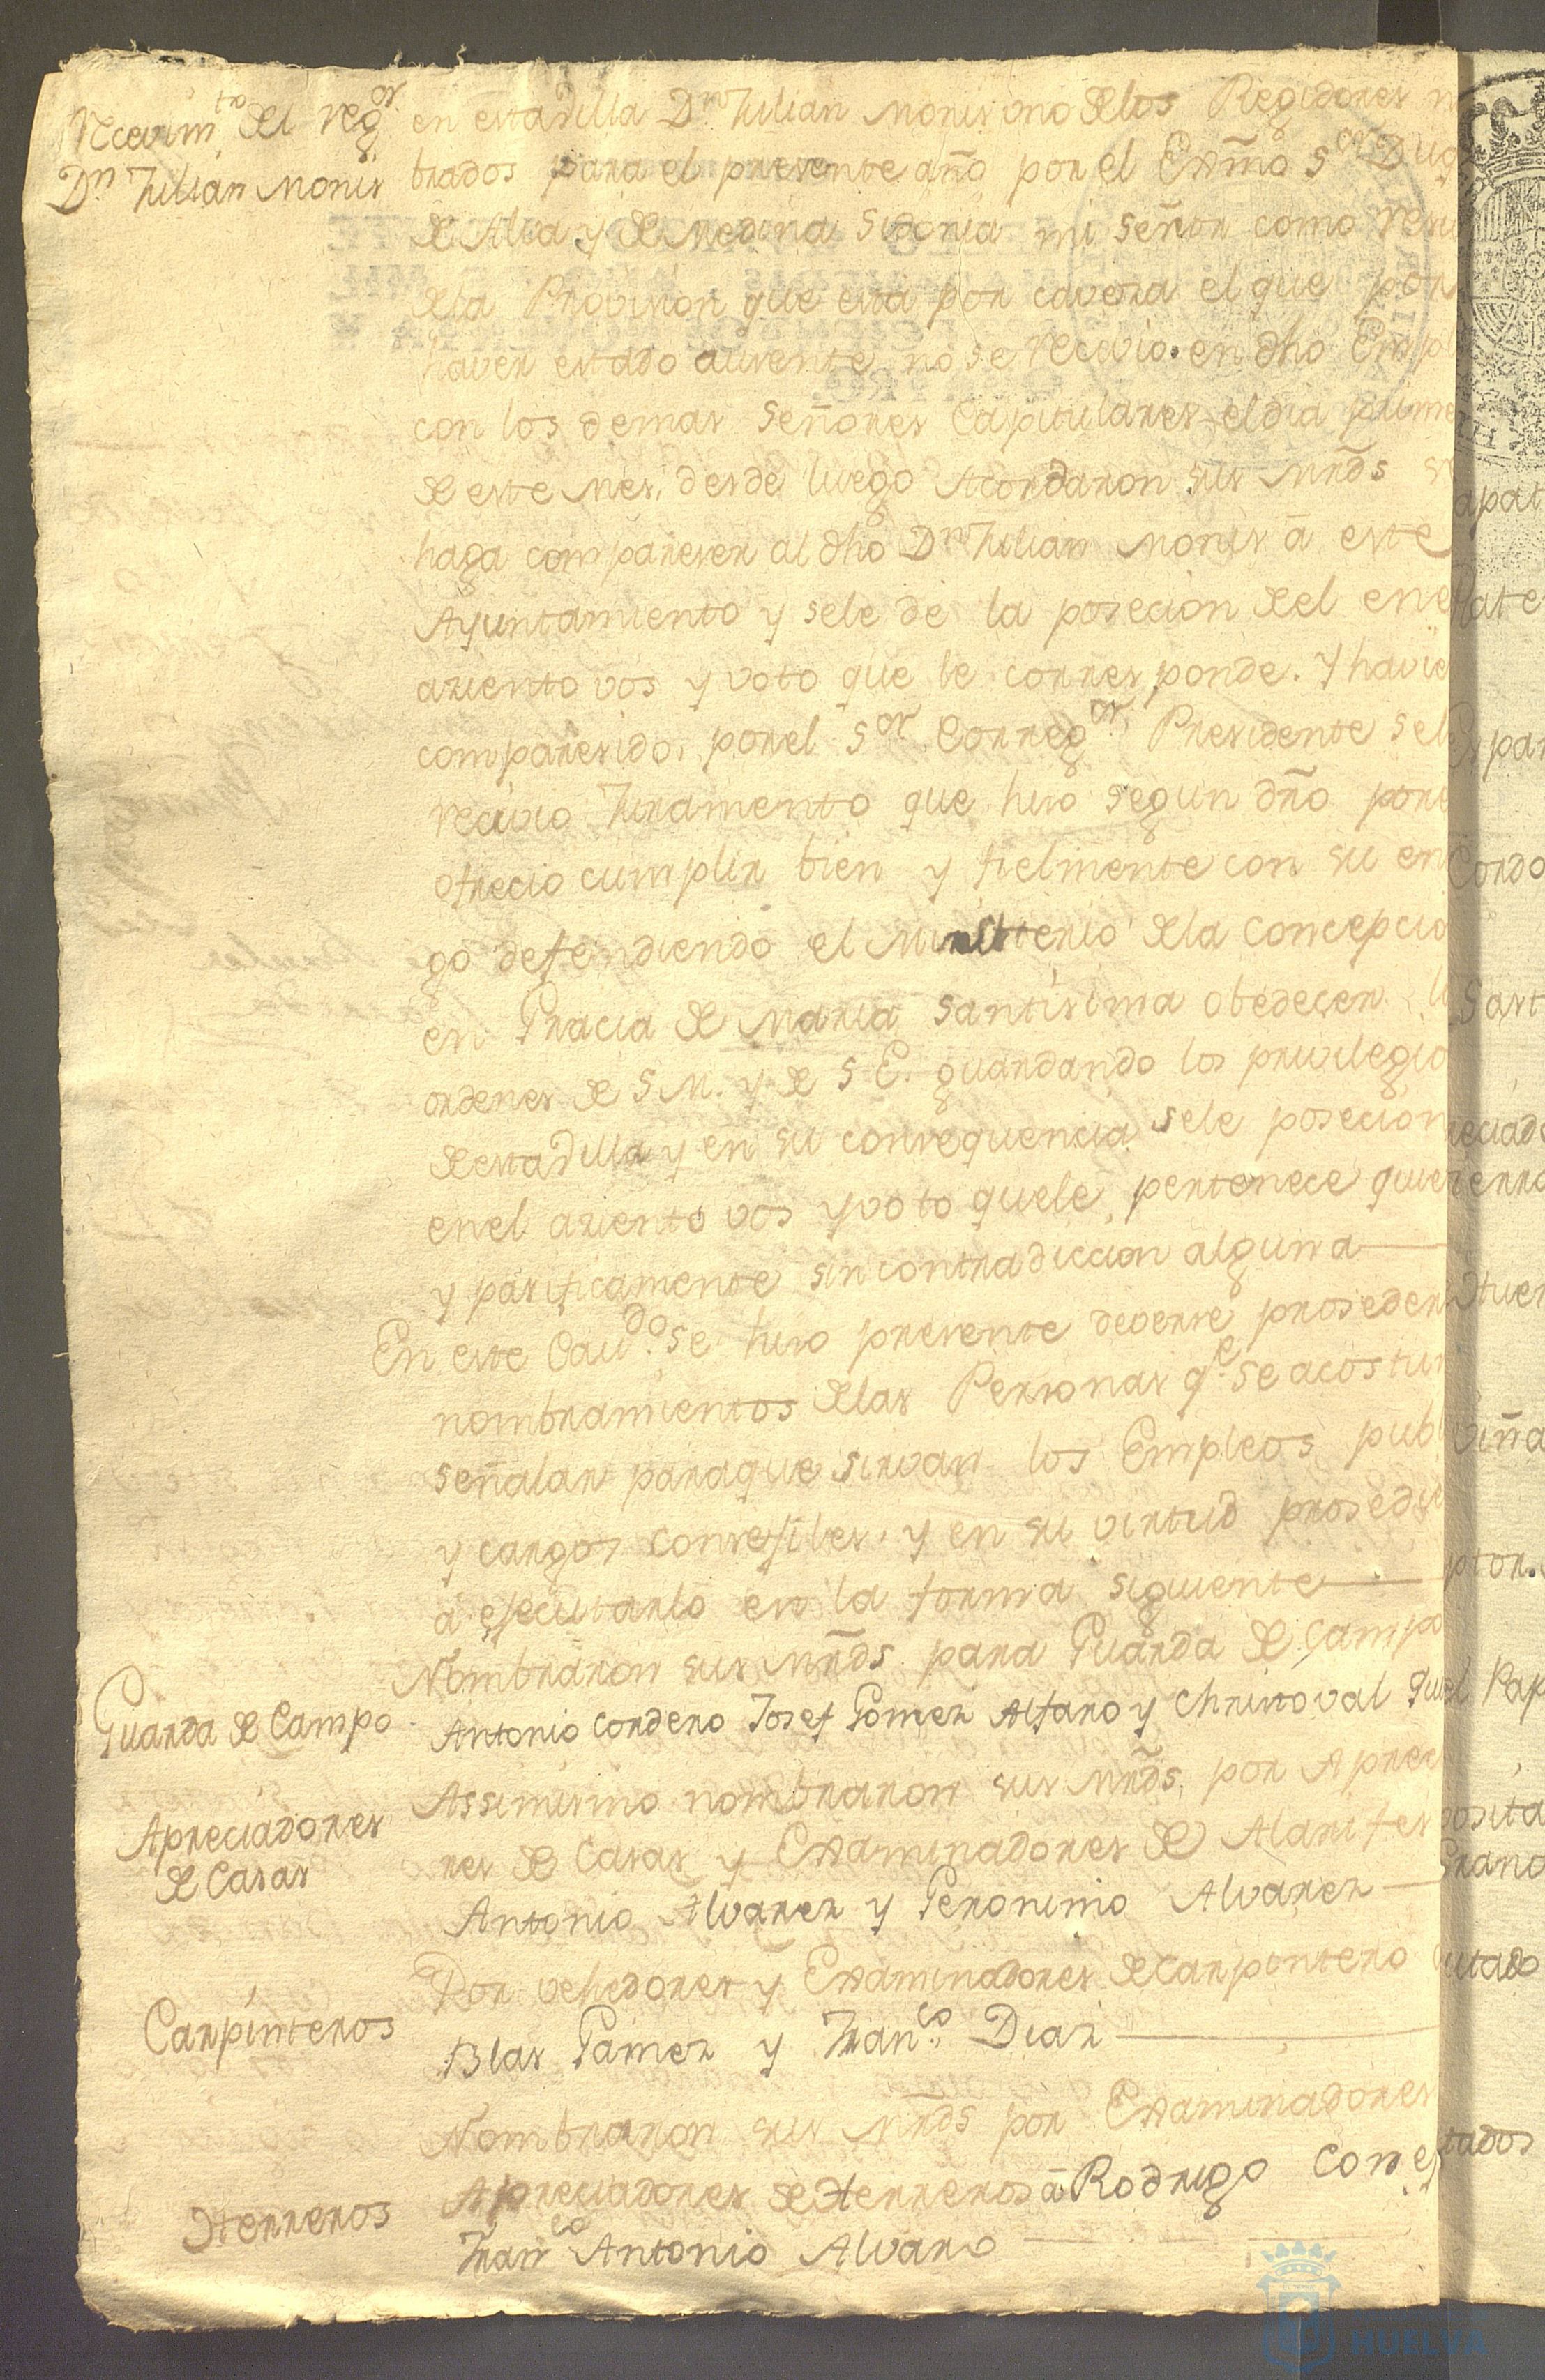 Recevim.to del reg.or
Dn Julian Monis
en esta Villa Dn Julian Monis uno de los Regidores
brados para el presente año por el Exmo Sor Duq
de Alba y de Medina Sidonia mi señor como resu
dela Provision que esta por cavesa el que por
haver estado ausente no se recivio en dho Empl
con los demas Señores Capitulares el dia prime
de este mes, desde luego Acordaron sus mrds s
haga compareser al dho Dn Julian Monis â este
Ayuntamiento y sele dé la posecion del en e
asiento vos y voto que le corresponde. Y havie
comparesido, por el Sor Corregor Presidente sel
recivio Juramento que hiso segun dño por
ofrecio cumplir bien y fielmente con su en
go defendiendo el Misterio dela Concepcio
en Gracia de Maria Santisima obedecer l
ordenes de S M. y de S E. guardando los privilegio
de esta Villa y en su consequencia sele posecion
en el asiento vos y voto quele pertenece quie
y pasificamente sin contradiccion alguna
En este Cavdo se hiso presente deverse proseder
nombramientos delas Personas qe se acostu
señalar paraque sirvan los Empleos pub
y cargos consejiles, y en su virtud prosed
á ejecutarlo en la forma siguiente
Guarda de Campo
Nombraron sus mrds para Guarda de Campo
Antonio Cordero Josef Gomez Alfaro y Christoval
Apreciadores
de Casas
Assimismo nombraron sus mrds por Aprec
res de Casas y Examinadores de Alarifes
Antonio Alvarez y Geronimo Alvarez
Carpinteros
Por vehedores y Examinadores de Carpintero
Blas Gamez y Franco Diaz
Nombraron sus mrds por Examinadores
Herreros
Apreciadores de Herreros â Rodrigo
Franco Antonio Alvaro
HUELVA